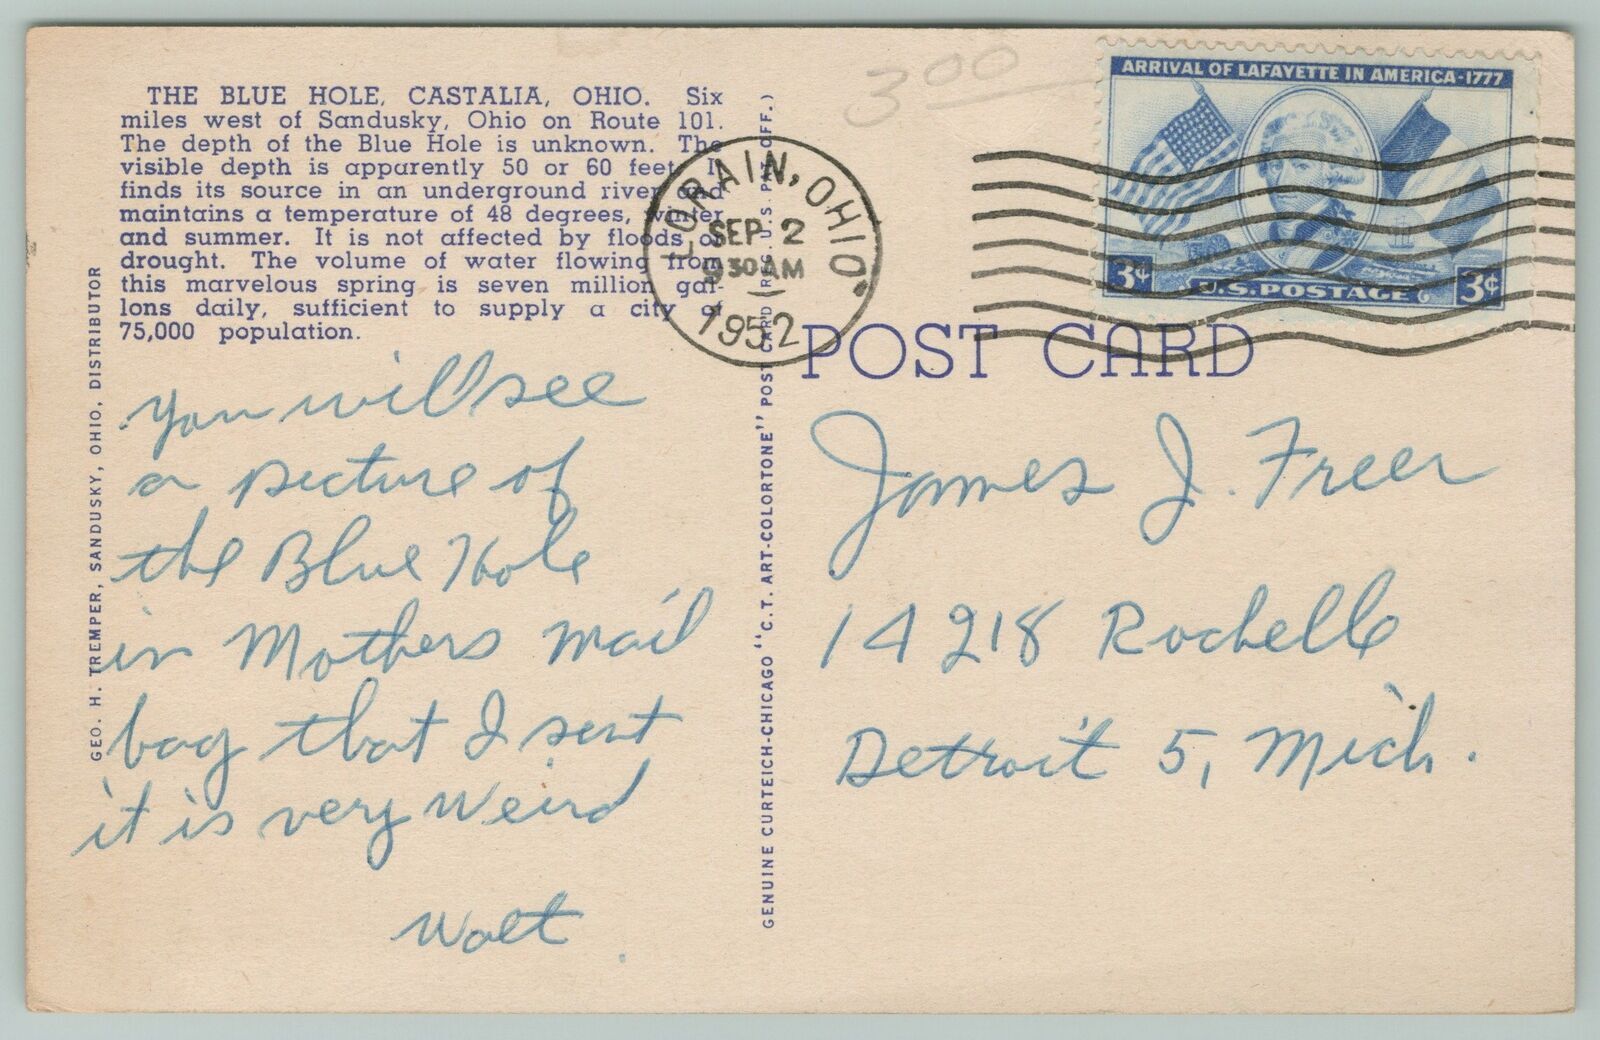 THE BLUE HOLE, CASTALIA, OHIO. Six
miles west of Sandusky, Ohio on Route 101.
The depth of the Blue Hole is unknown. The
visible depth is apparently 50 or 60 feet. It
finds its source in an underground river and
maintains a temperature of 48 degrees, winter
and summer. It is not affected by floods or
drought. The volume of water flowing from
this marvelous spring is seven million gal-
lons daily, sufficient to supply a city of
75,000 population.
GEO. H. TREMPER, SANDUSKY, OHIO, DISTRIBUTOR
You will see
a picture of
the Blue Hole
in Mothers mail
bag that I sent
it is very weird
Walt.
GENUINE CURTEICH-CHICAGO "C.T. ART-COLORTONE" POST CARD (REG. U.S. PAT. OFF.)
LORAIN, OHIO
SEP 2
930 AM
1952
3 00
ARRIVAL OF LAFAYETTE IN AMERICA-1777
3¢
U.S. POSTAGE
3¢
POST CARD
James J. Freer
14218 Rochelle
Detroit 5, Mich.